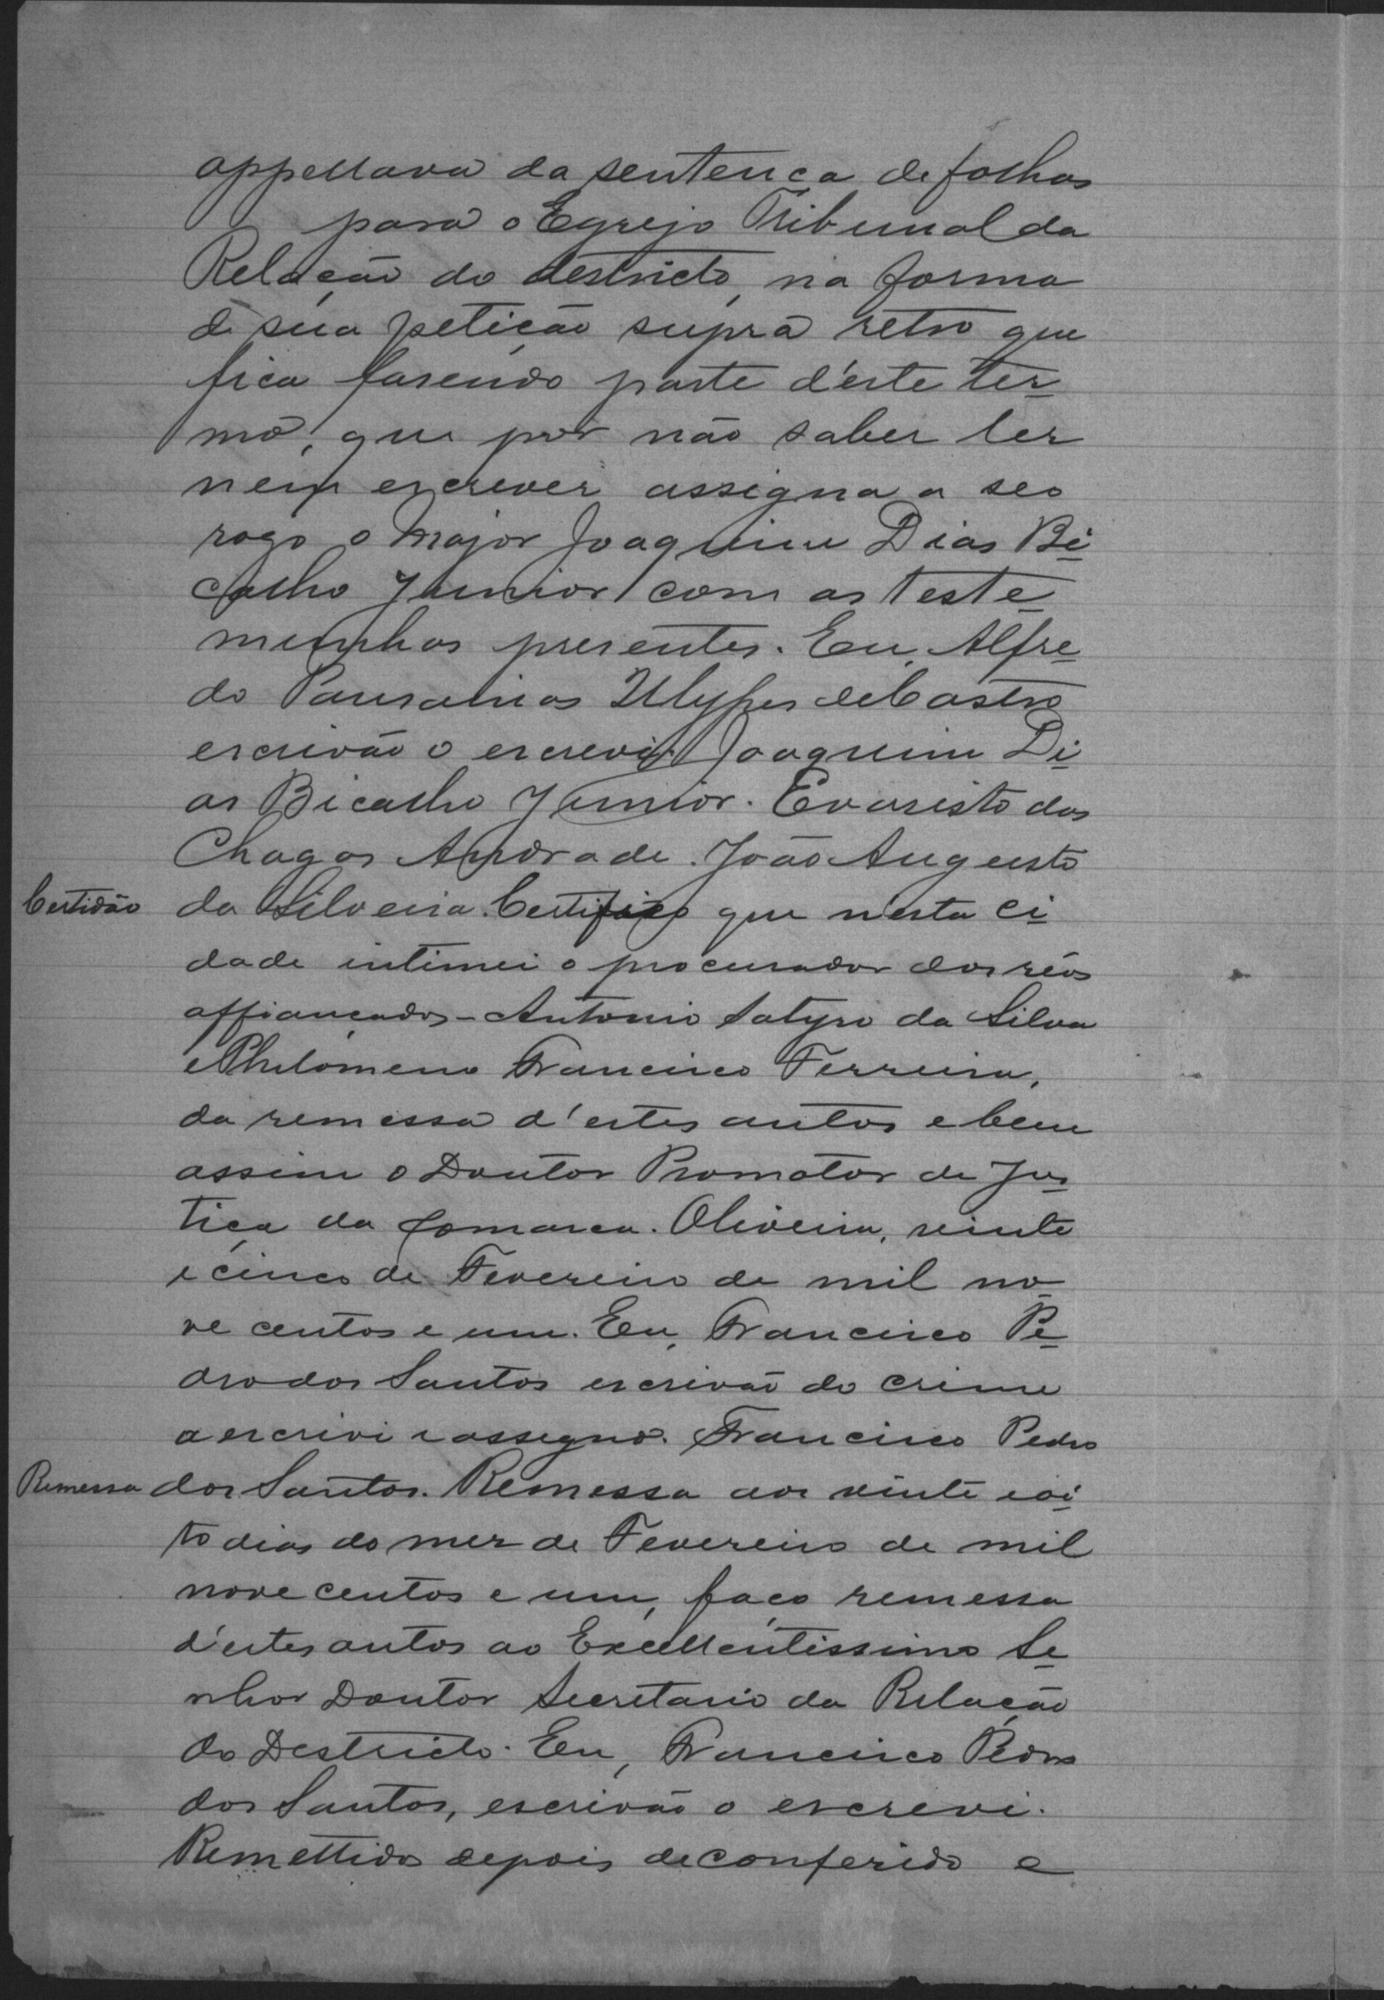 appellava da sentença de folhas
para o Egrejo Tribunal da
Relação do destricto, na forma
de sua petição supra retro que
fica fasendo parte d'este ter-
mo, que por não saber ler
nem escrever assigna a seo
rogo o Major Joaquim Dias Bi-
calho Junior com as teste-
munhas presentes. Eu, Alfre-
do Pausanias Ulysses de Castro
escrivão o escrevi. Joaquim Di-
as Bicalho Junior. Evaristo das
Chagas Andrade. João Augusto
Certidão da Silveira. Certifico que nesta ci-
dade intimei o procurador dos réos
affiançados - Antonio Satyro da Silva
e Philomeno Francisco Ferreira,
da remessa d'estes autos e bem
assim o Doutor Promotor de Jus-
tiça da Comarca. Oliveira, vinte
e cinco de Fevereiro de mil no-
ve centos e um. Eu, Francisco Pe-
dro dos Santos escrivão do crime
a escrivi e assegno. Francisco Pedro
Remessa dos Santos. Remessa aos vinte e oi-
to dias do mez de Fevereiro de mil
nove centos e um, faço remessa
d'estes autos ao Excellentissimo Se-
nhor Doutor Secretario da Relação
do Destricto. Eu, Francisco Pedro
dos Santos, escrivão o escrevi.
Remettidos depois de conferido e